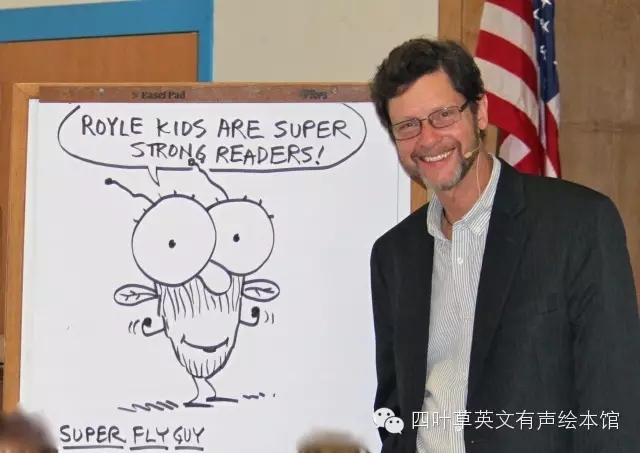 Easel Pad
ROYLE KIDS ARE SUPER
STRONG READERS!
SUPER FLY GUY
四叶草英文有声绘本馆